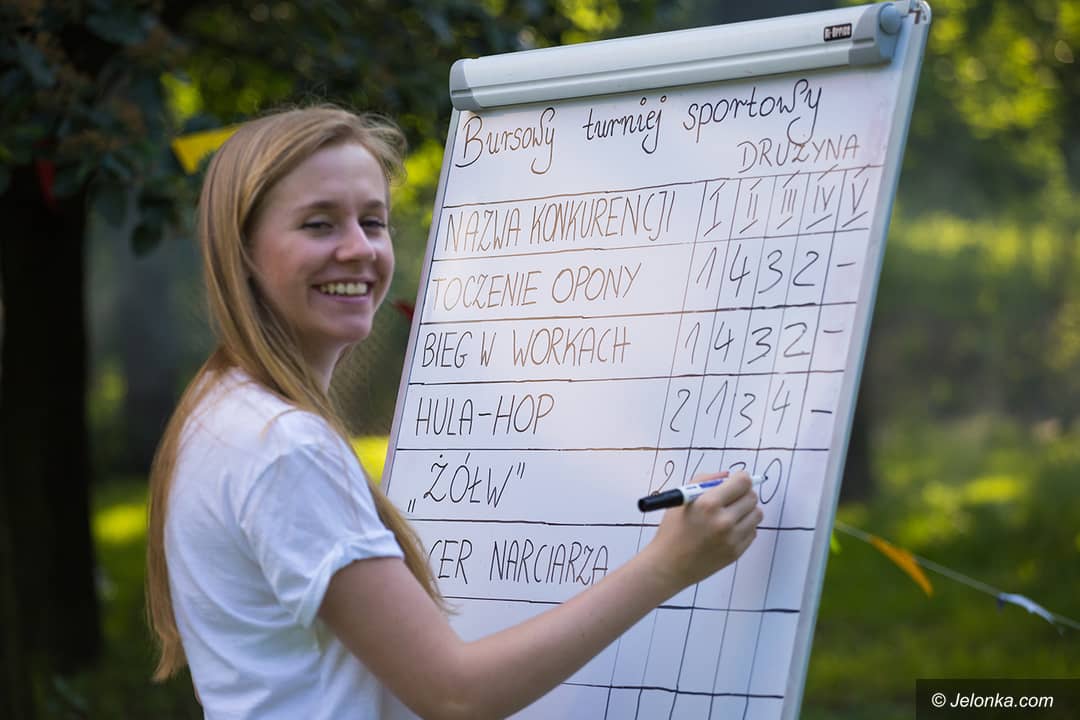 Bi-Office
Bursowy turniej sportowy
DRUŻYNA
NAZWA KONKURENCJI I II III IV V
TOCZENIE OPONY 1 4 3 2 -
BIEG W WORKACH 1 4 3 2 -
HULA-HOP 2 1 3 4 -
„ŻÓŁW" 2 0
CER NARCIARZA
© Jelonka.com